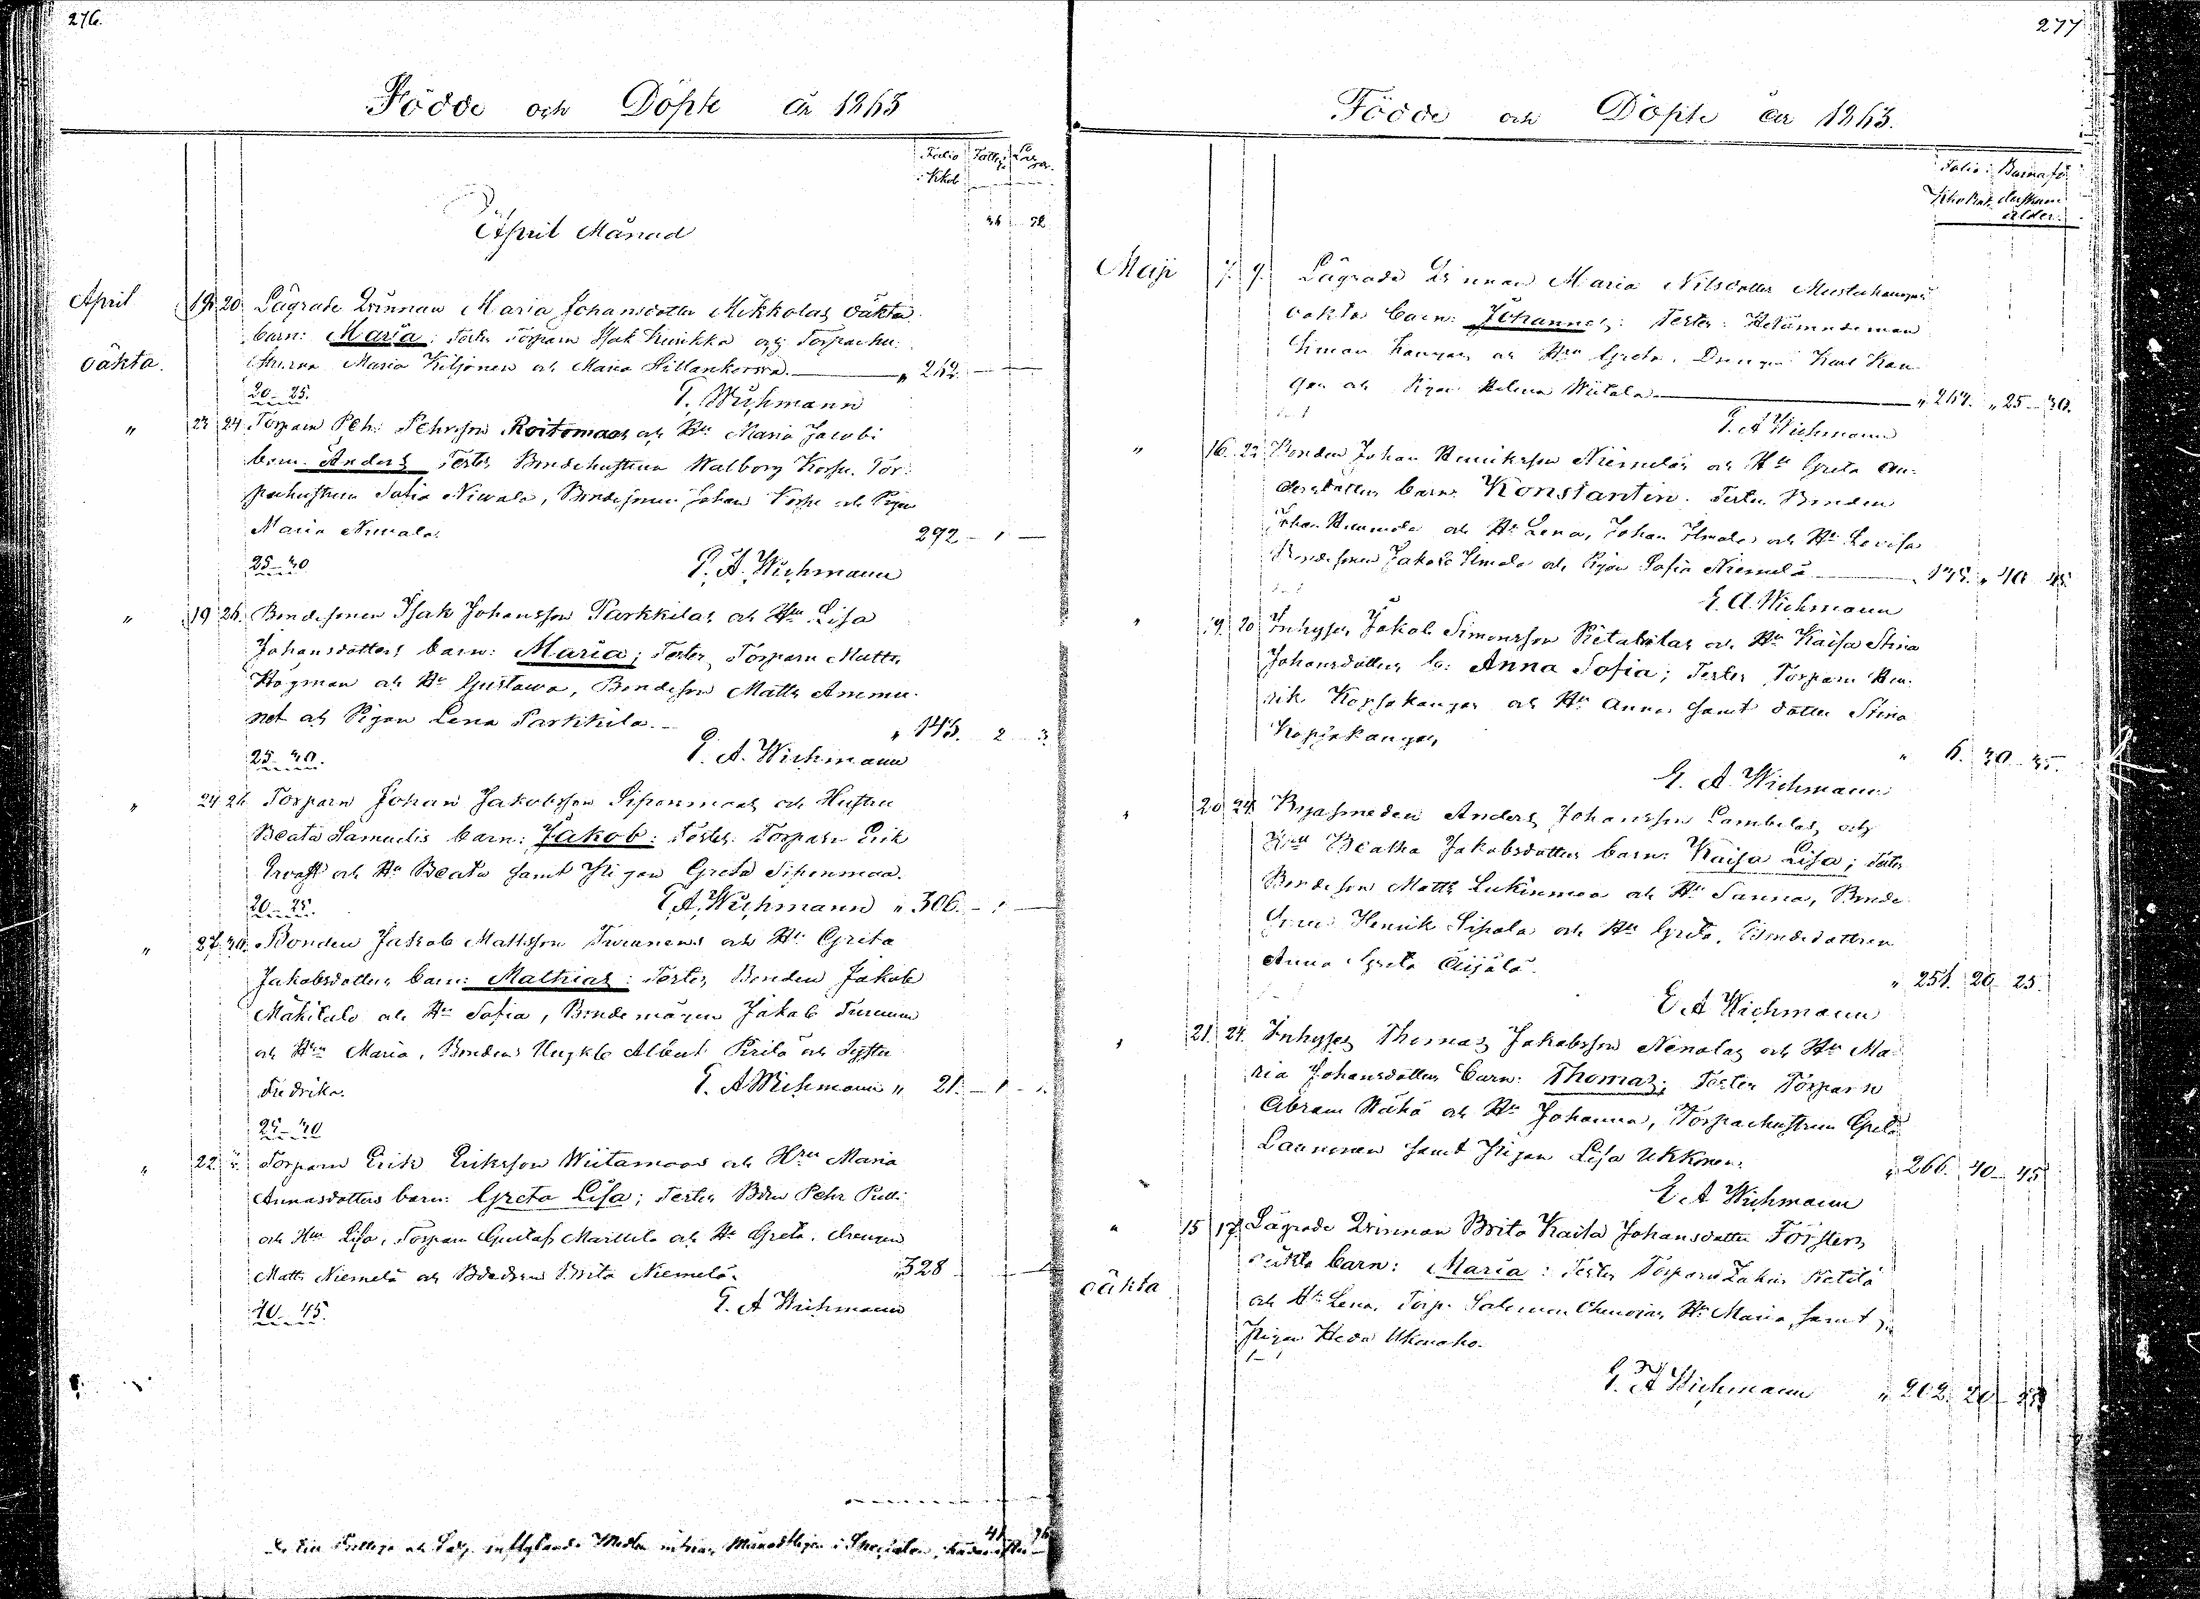 276.
Födde och Döpte år 1863
Folio i Kkob
April Månad
April 19 20 Lägrade Qvinnan Maria Johansdotter Mikkolas oäkta
barn: Maria; Testes Torparn Isak och Torparhu-
oäkta. strurna Maria Kiljonen och Maria " 262.
20–25. Wichmann
" 23 24 Torparn Pehr Pehrsson Roitomaas och Hu Maria Jacobi
barn. Anders Testes Bondehustrun Walborg Tor-
parhustrun Sofia Niwala, Bondesonen Johan och Pigan
Maria Niwala. 292 – 1 –
25–30 E. A. Wichmann
" 19 26. Bondesonen Isak Johansson Parkkilas och Hu Lisa
Johansdotters barn: Maria; Testes Torparn Matts
Högman och Hu Gustawa, Bondeson Matts Ammu-
net och Pigan Lena Parkkila. " 143. 2 3.
25–30. E. A. Wichmann
" 24 26 Torparn Johan Jakobsson Siponmaas och Hustru
Beata Samuelis barn: Jakob: Testes: Torparn Erik
och Hu Beata samt Pigan Greta Siponmaa.
20–25. E. A. Wichmann " 306. – 1 –
" 27 30. Bonden Jakob Mattsson Turunens och Hu Greta
Jakobsdotters barn: Mathias: Testes, Bonden Jakob
Mäkitalo och Hu Sofia, Bondemågen Jakob Turunen
och Hru Maria, Bondens Albert Pirilä och Syster
Fredrika. E. A Wichmann " 21. – 1 –
25–30
" 22 Torparn Erik Eriksson Wiitamaas och Hru Maria
Annasdotters barn: Greta Lisa; Testes Bdn Pehr
och Hru Lisa, Torparn Gustaf Marttila och Hu Greta, drengen
Matts Niemelä och Bdedren Brita Niemelä. " 328
40–45. E. A Wichmann
277
Födde och Döpte år 1863.
Folio i Barnaföderskans ålder.
Maji 7. 9. Lägrade Qvinnan Maria Nilsdotter Mustakangas
oäkta barn: Johannes: Testes:
Simon Kangas och Hru Greta, Drengen Karl Kan-
gas och Pigan Helena Wiitala. " 267. " 25–30.
E. A Wichmann
" 16. 22 Bonden Johan Henriksson Niemeläs och Hu Greta An-
dersdotters barn: Konstantin. Testes Bonden
Johan och Hu Lena, Johan Ilmola och Hu Lovisa
Bondesonen Jakob Ilmola och Pigan Sofia Niemelä " 135. " 40 45.
E. A. Wichmann
" 19 20 Inhyses Jakob Simonsson och Hu Kaisa Stina
Johansdotters b: Anna Sofia; Testes Torparn Hen-
rik Kopsakangas och Hu Anna samt dotter Stina
Kopsakangas, " 6. 30–35.
E. A. Wichmann
" 20 24 Byasmeden Anders Johansson Lambelas och
Hru Beatha Jakobsdotters barn: Kaisa Lisa; Testes
Bondeson Matts Lukinmaa och Hu Sanna, Bonde-
sonen Henrik Sipola och Hu Greta, Bondedottren
Anna Greta " 251. 20–25.
E. A Wichmann
" 21. 24. Inhyses Thomas Jakobsson Nenolas och Hu Ma-
ria Johansdotters barn: Thomas; Testes Torparn
Abram och Hu Johanna, Torparhustrun Greta
Launonen samt Pigan Lisa Ukkonen. " 266. 40–45
E. A Wichmann
" 15 17 Lägrade Qvinnan Brita Kaisa Johansdotter Försters
oäkta barn: Maria: Testes Torparn Ketilä
oäkta
och Hu Lena, Torp. Salomon Hu Maria, samt
Pigan Heda
E. A Wichmann " 202. 20–25